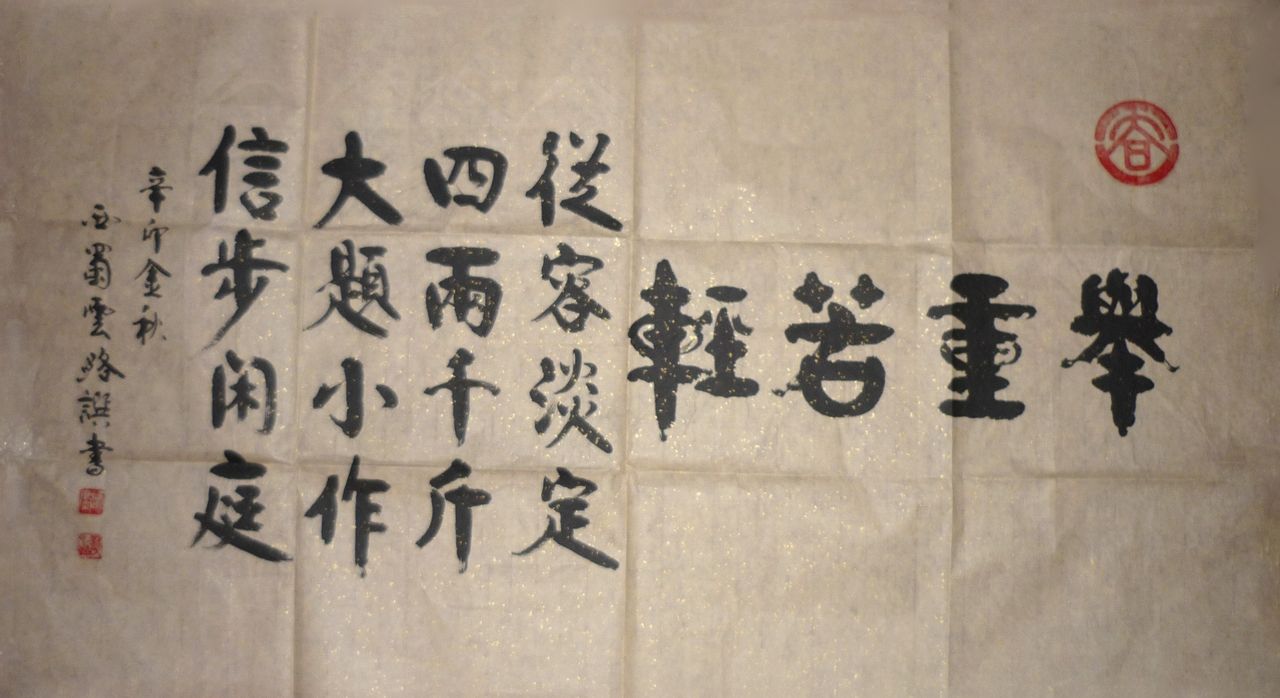 舉重若輕
從容淡定
四兩千斤
大題小作
信步闲庭
辛卯金秋
西蜀雲路譔書